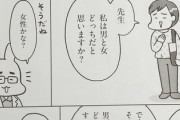 先生
私は男と女
どっちだと
思いますか？
そうだね
女性かな？